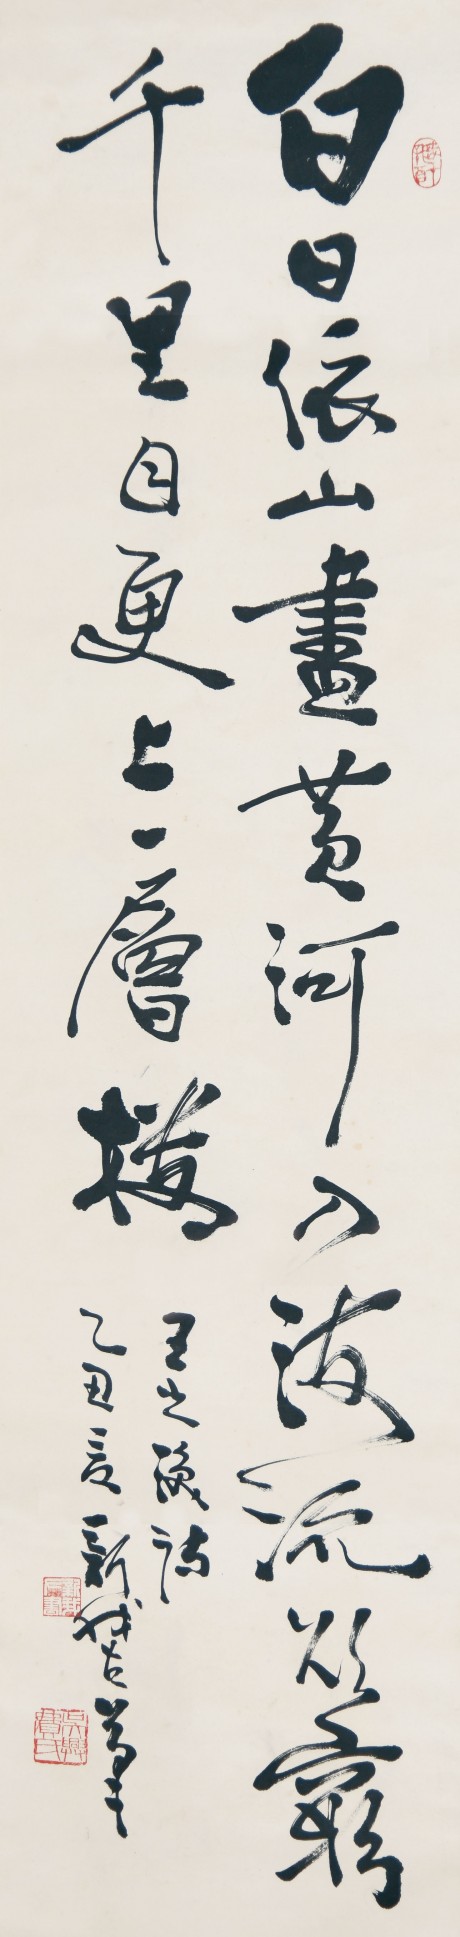 白日依山盡黃河入海流欲窮
千里目更上一層樓
王之渙詩
乙丑夏新我左筆
吳興費氏